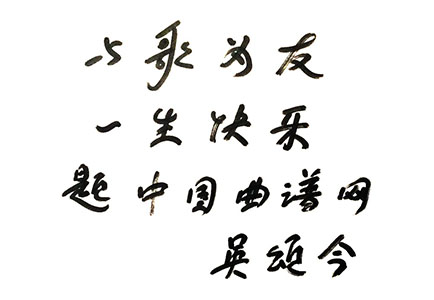 与歌为友
一生快乐
题中国曲谱网
吴颂今